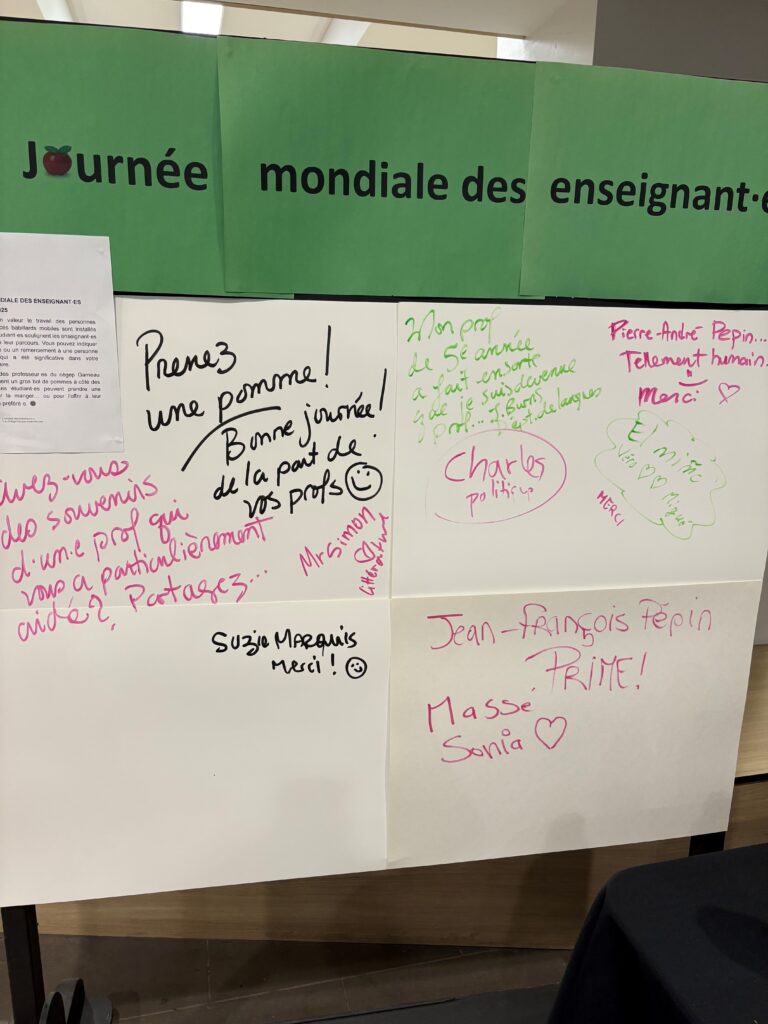 Journée mondiale des enseignant·e
DIALE DES ENSEIGNANT·ES
25
n valeur le travail des personnes
ces babillards mobiles sont installés
udiant·es soulignent les enseignant·es
leur parcours. Vous pouvez indiquer
ou un remerciement à une personne
qui a été significative dans votre
des professeur·es du cégep Garneau
ent un gros bol de pommes à côté des
es étudiant·es peuvent prendre une
la manger... ou pour l'offrir à leur
préféré·e.
Prenez
une pomme!
Bonne journée!
de la part de
vos profs
Avez-vous
des souvenirs
d'un·e prof qui
vous a particulièrement
aidé? Partagez...
Mr Simon
littérature
Mon prof
de 5e année
a fait en sorte
que je suis devenue
prof... J. Burns,
dépt. de langues
Pierre-André Pépin...
Tellement humain.
Merci
Charles
politique
El miñe
Véro
MERCI
Suzie MARQUIS
Merci!
Jean-François Pépin
PRIME!
Massé
Sonia